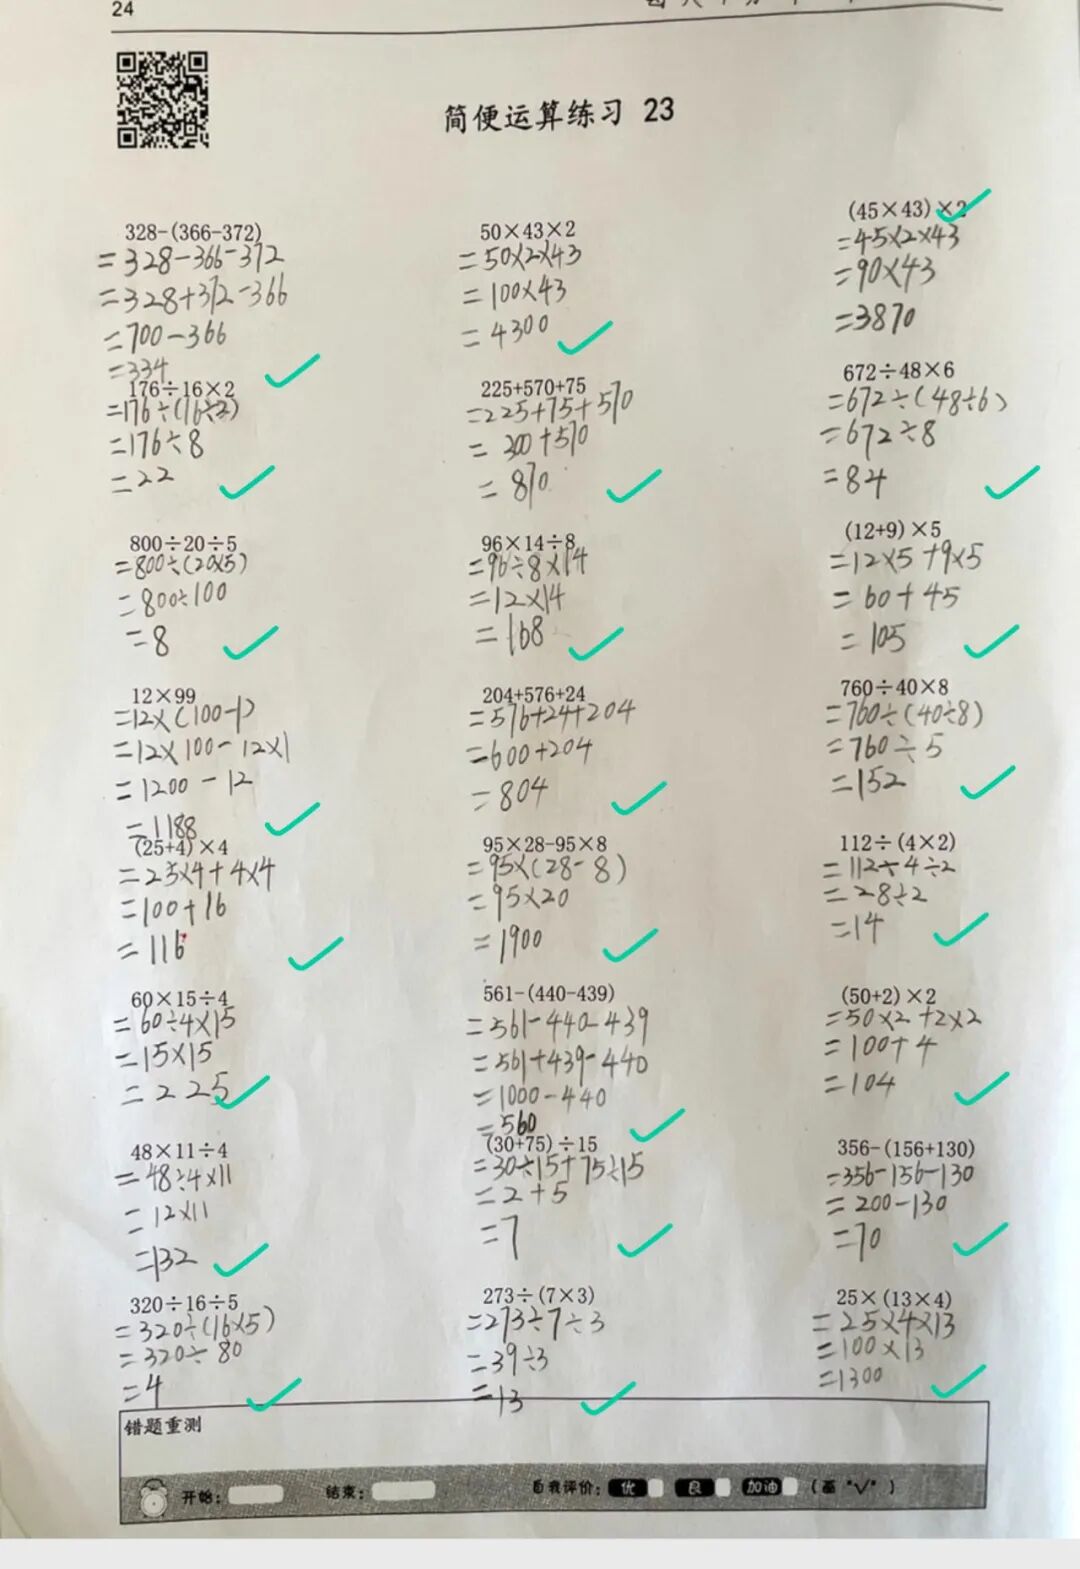 24
简便运算练习 23
328-(366-372)
=328-366-372
=328+372-366
=700-366
=334
50×43×2
=50×2×43
=100×43
=4300
(45×43)×2
=45×2×43
=90×43
=3870
176÷16×2
=176÷(16÷2)
=176÷8
=22
225+570+75
=225+75+570
=300+570
=870
672÷48×6
=672÷(48÷6)
=672÷8
=84
800÷20÷5
=800÷(20×5)
=800÷100
=8
96×14÷8
=96÷8×14
=12×14
=168
(12+9)×5
=12×5+9×5
=60+45
=105
12×99
=12×(100-1)
=12×100-12×1
=1200-12
=1188
204+576+24
=576+24+204
=600+204
=804
760÷40×8
=760÷(40÷8)
=760÷5
=152
(25+4)×4
=25×4+4×4
=100+16
=116
95×28-95×8
=95×(28-8)
=95×20
=1900
112÷(4×2)
=112÷4÷2
=28÷2
=14
60×15÷4
=60÷4×15
=15×15
=225
561-(440-439)
=561-440-439
=561+439-440
=1000-440
=560
(50+2)×2
=50×2+2×2
=100+4
=104
48×11÷4
=48÷4×11
=12×11
=132
(30+75)÷15
=30÷15+75÷15
=2+5
=7
356-(156+130)
=356-156-130
=200-130
=70
320÷16÷5
=320÷(16×5)
=320÷80
=4
273÷(7×3)
=273÷7÷3
=39÷3
=13
25×(13×4)
=25×4×13
=100×13
=1300
错题重测
开始: 结束: 自我评价: 优 良 加油 (画"√")